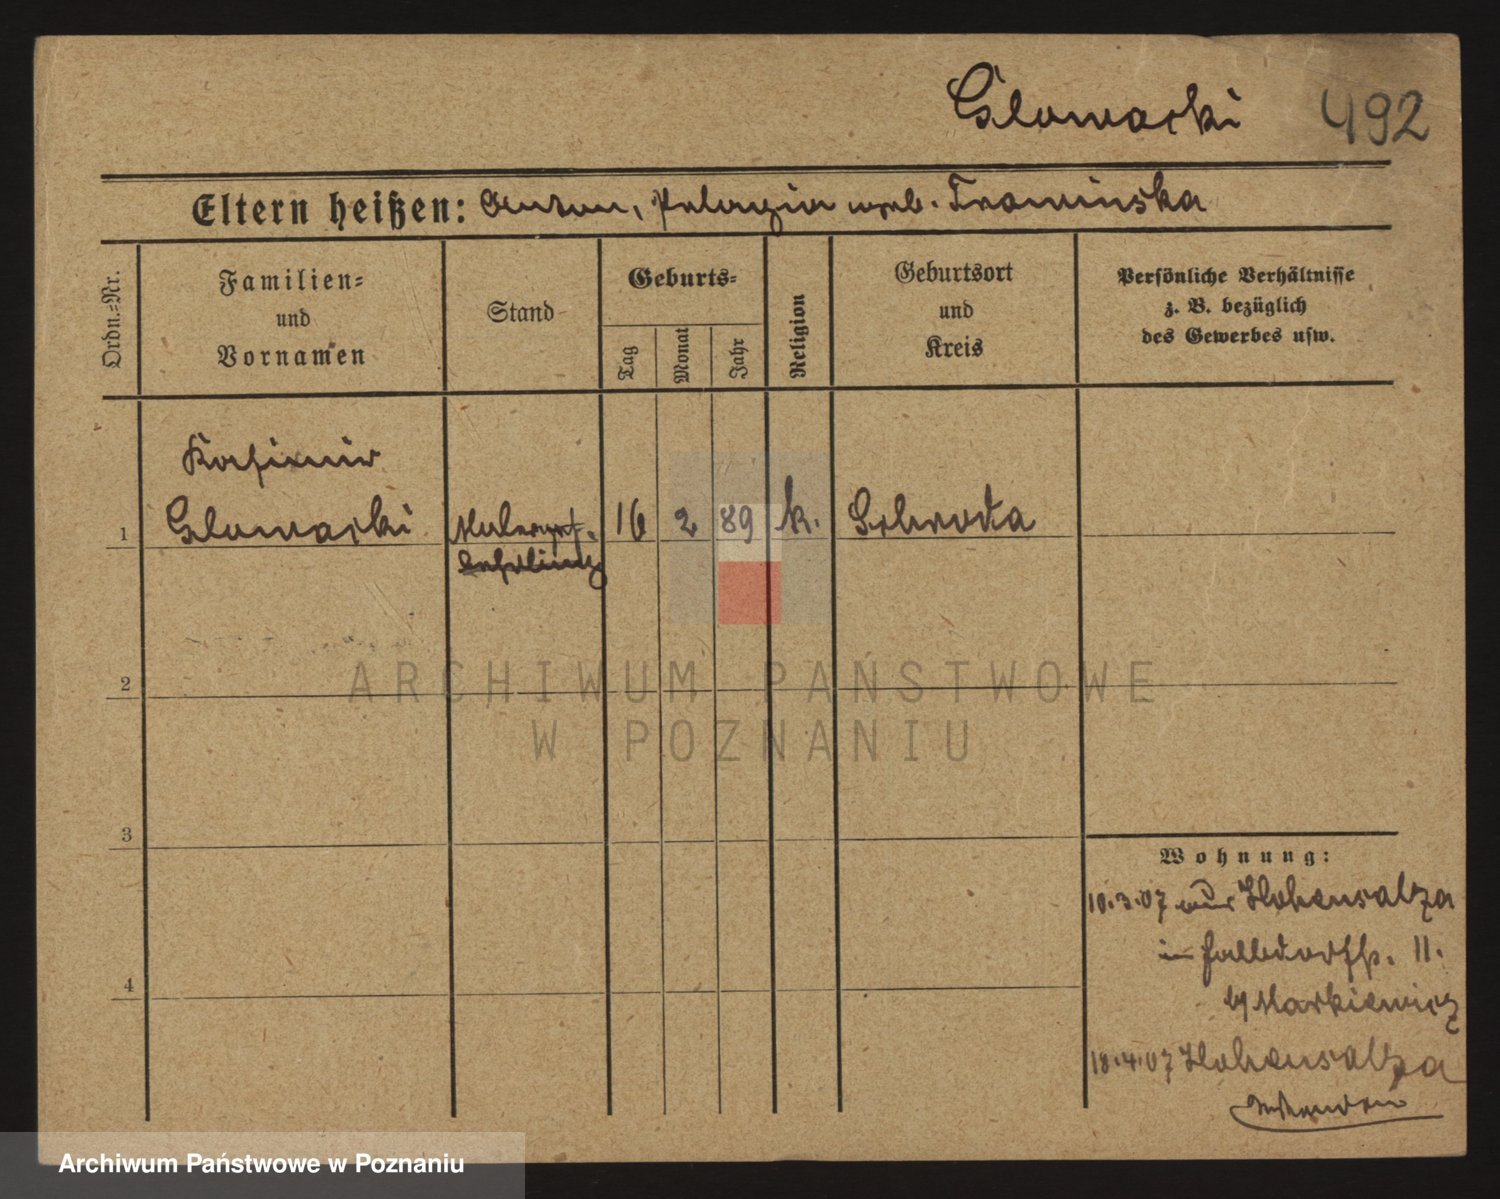 Glowacki 492
Eltern heißen: Anton, Pelagia geb. Trawinska
Ordn.-Nr.
Familien-
und
Vornamen
Stand
Geburts-
Tag
Monat
Jahr
Religion
Geburtsort
und
Kreis
Persönliche Verhältnisse
z. B. bezüglich
des Gewerbes usw.
Kasimir
1 Glowacki Maler 16 2 89 k. Schroda
lehrling
2
3
4
Wohnung:
10.3.07 aus Hohensalza
in Halbdorfstr. 11.
b/ Markiewicz
18.4.07 Hohensalza
ARCHIWUM PAŃSTWOWE
W POZNANIU
Archiwum Państwowe w Poznaniu